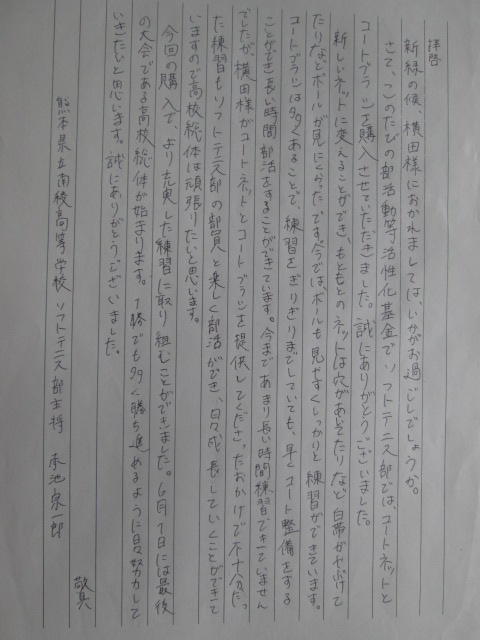 拝啓
新緑の候、横田様におかれましては、いかがお過ごしでしょうか。
さて、このたびの部活動等活性化基金でソフトテニス部では、コートネットと
コートブラシを購入させていただきました。誠にありがとうございました。
新しいネットに変えることができ、もともとのネットは穴があいてたりなど白帯がやぶけて
たりなどボールが見にくかったです。今では、ボールも見やすくしっかりと練習ができています。
コートブラシは多くあることで、練習をぎりぎりまでしていても、早くコート整備をする
ことができ長い時間部活をすることができています。今まであまり長い時間練習できていません
でしたが横田様がコートネットとコートブラシを提供してくださったおかげで不十分だっ
た練習もソフトテニス部の部員と楽しく部活ができ、日々成長していくことができて
いますので高校総体は頑張りたいと思います。
今回の購入で、より充実した練習に取り組むことができました。6月1日には最後
の大会である高校総体が始まります。1勝でも多く勝ち進めるように日々努力して
いきたいと思います。誠にありがとうございました。
敬具
熊本県立南稜高等学校 ソフトテニス部主将 池 一郎